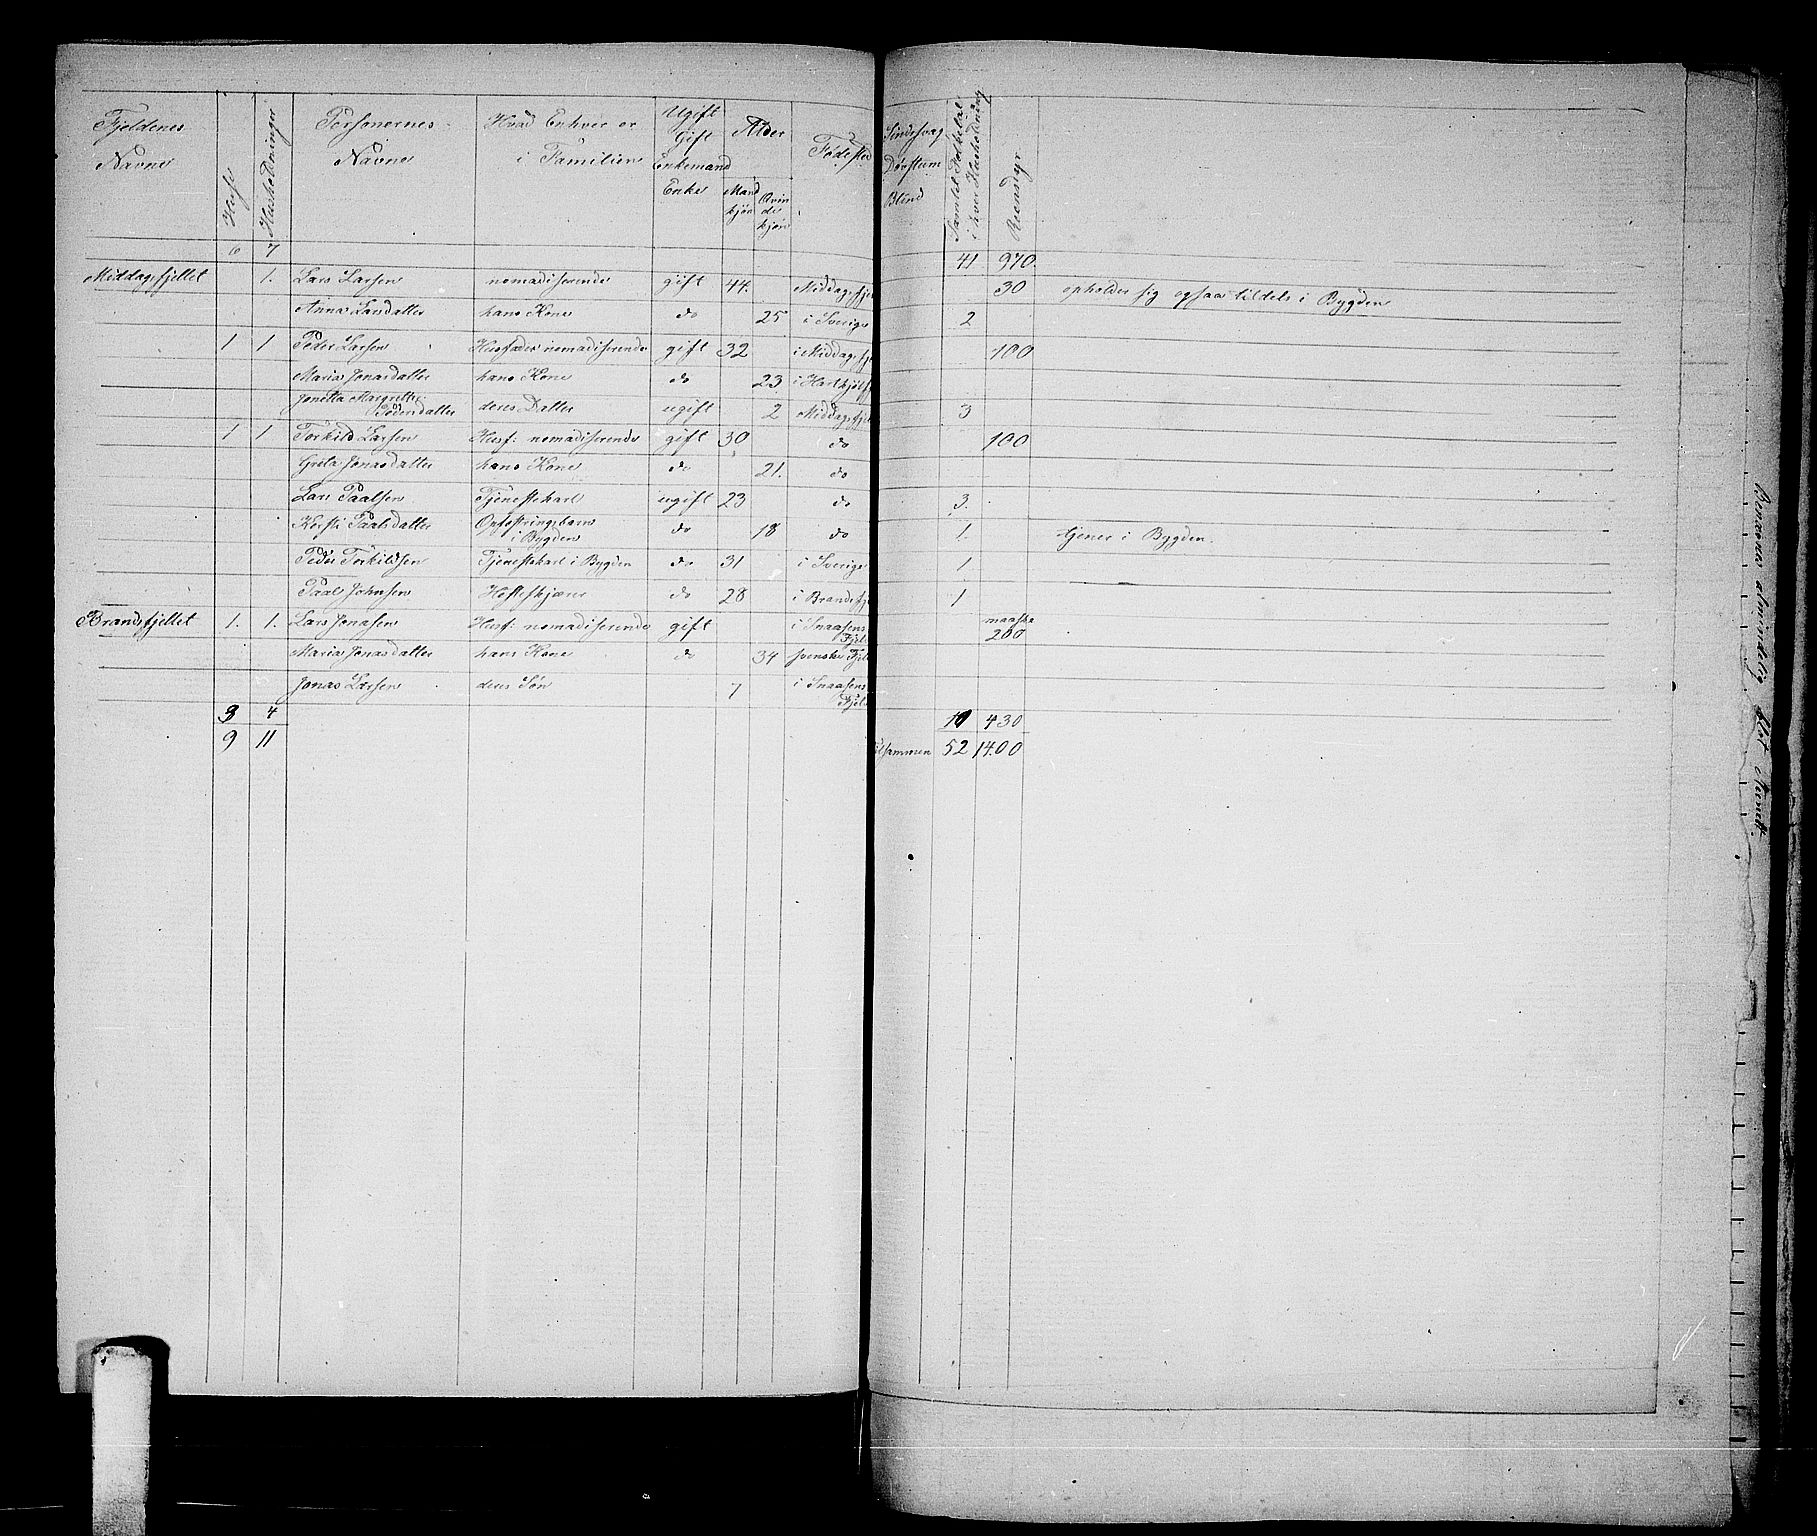 Fjeldenes Navne | Huse | Huusholdninger | Personernes Navne | Hvad Enhver er i Familien | Ugift Gift Enkemand Enke | Alder Mandkjøn Qvindekjøn | Fødested | Sindssvag Døvstum Blind | Samlet Folketal i hver Huusholdning | Reensdyr
6 | 7 | 41. | 970.
Middagsfjellet | 1. | Lars Larsen | nomadiserende | gift | 44. | Middagsfje | 30 | opholder sig ogsaa tildels i Bygden
Anna Larsdatter | hans Kone | do | 25 | i Sverige | 2
1 | 1 | Peder Larsen | Huusfader nomadiserende | gift | 32 | i Middagsfje | 100
Maria Jonasdatter | hans Kone | do | 23 | i Hartkjølfj
Jonetta Margrethe Pedersdatter | deres Datter | ugift | 2 | Middagsfje | 3
1 | 1 | Torkild Larsen | Husf: nomadiserende | gift | 30 | do | 100
Greta Jonasdatter | hans Kone | do | 21. | do
Lars Paalsen | Tjenestekarl | ugift | 23 | do | 3.
Kersti Paalsdatter | Opfostringsbarn i Bygden | do | 18 | do | 1. | tjener i Bygden.
Peder Torkildsen | Tjenestekarl i Bygden | do | 31 | i Sverige | 1
Paal Johnsen | do | 28 | i Brandsfj | 1
Brandsfjellet | 1. | 1. | Lars Jonasen | Husf: nomadiserende | gift | i Snaasens Fjeld | maaske 200
Maria Jonasdatter | hans Kone | do | 34 | svenske Fjel
Jonas Larsen | deres Søn | 7 | i Snaasens Fjeld
3 | 4 | 10 | 430
9 | 11 | Tilsammen | 52 | 1400